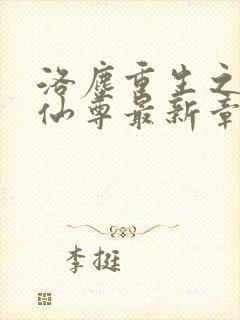 洛尘重生之
仙尊最新章
李挺